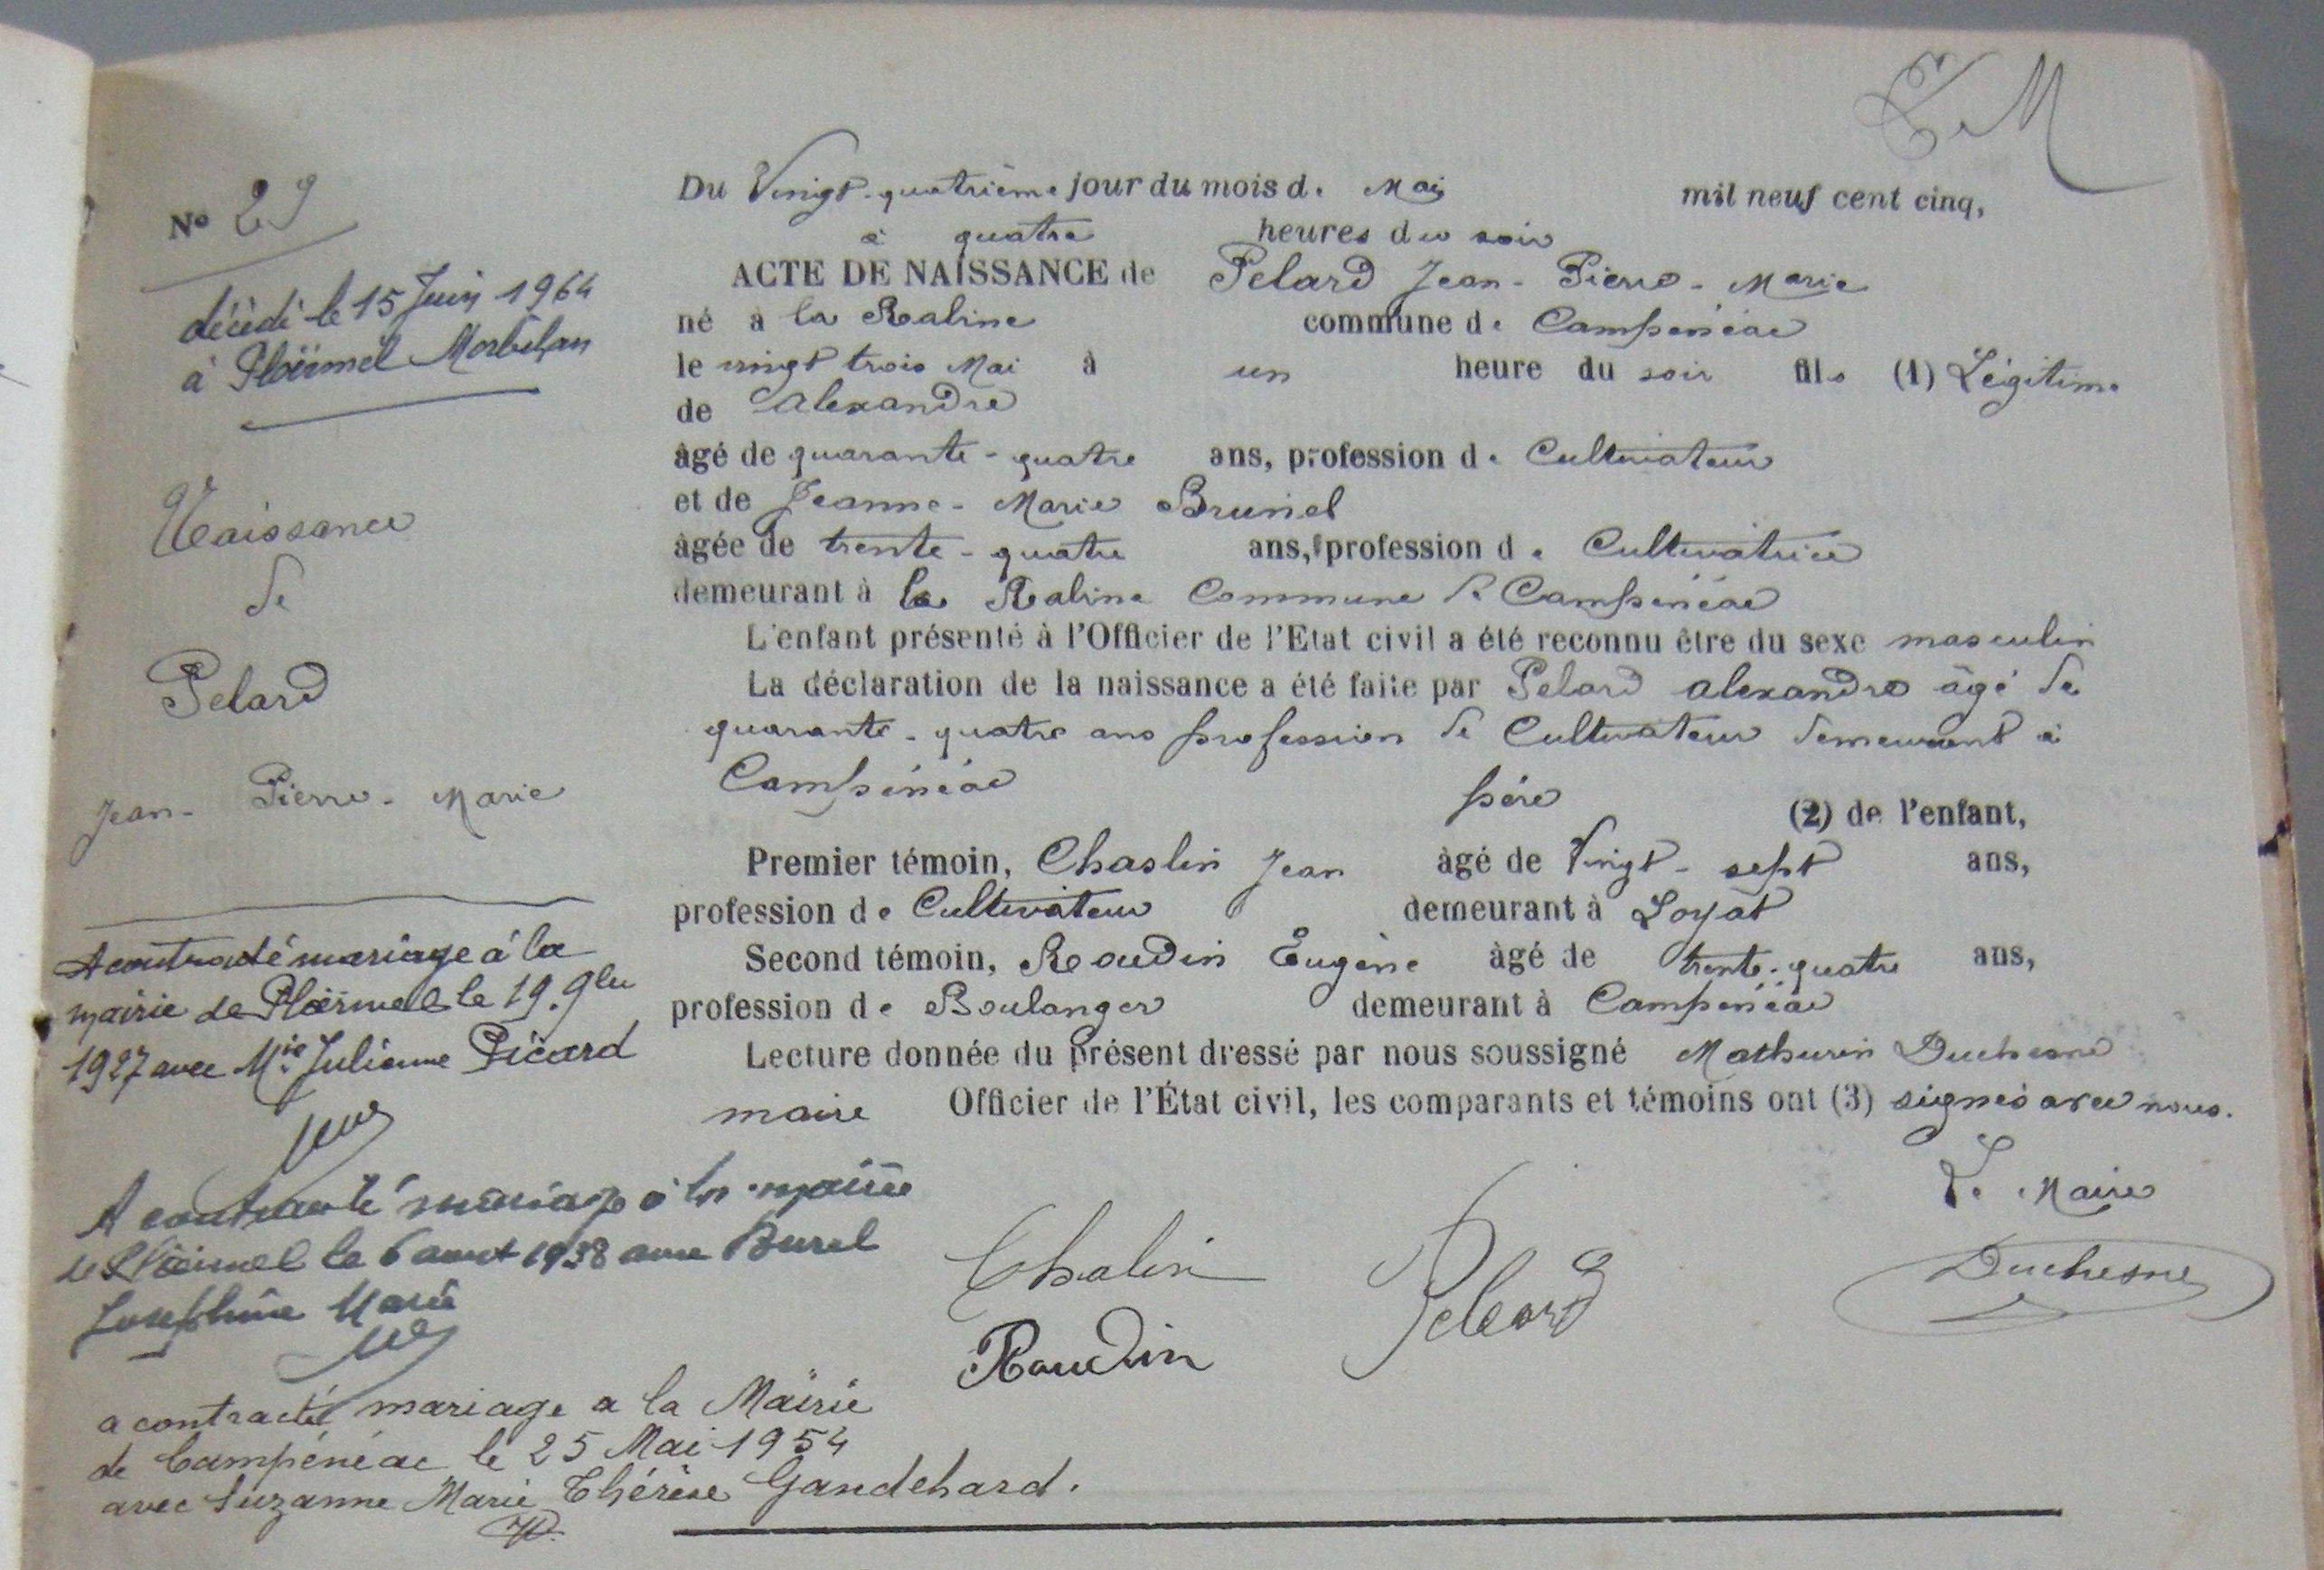 N° 29
décédé le 15 Juin 1964
à Ploërmel Morbihan
Naissance
de
Pelard
Jean-Pierre-Marie
A contracté mariage à la
mairie de Ploërmel le 19. 9bre
1927 avec Mie Julienne Picard
A contracté mariage à la mairie
de Ploërmel le 6 août 1938 avec Burel
Joséphine Marie
a contracté mariage a la Mairie
de Campénéac le 25 Mai 1954
avec Suzanne Marie Thérèse Gandehard.
Du Vingt-quatrième jour du mois de Mai mil neuf cent cinq,
à quatre heures du soir
ACTE DE NAISSANCE de Pelard Jean-Pierre-Marie
né à la Rabine commune de Campénéac
le vingt trois Mai à un heure du soir fils (1) Légitime
de Alexandre
âgé de quarante-quatre ans, profession de Cultivateur
et de Jeanne-Marie Brunel
âgée de trente-quatre ans, profession de Cultivatrice
demeurant à la Rabine Commune de Campénéac
L'enfant présenté à l'Officier de l'Etat civil a été reconnu être du sexe masculin
La déclaration de la naissance a été faite par Pelard alexandre âgé de
quarante-quatre ans profession de Cultivateur demeurant à
Campénéac père (2) de l'enfant,
Premier témoin, Chaslin Jean âgé de Vingt-sept ans,
profession de Cultivateur demeurant à Loyat
Second témoin, Roudin Eugène âgé de trente-quatre ans,
profession de Boulanger demeurant à Campénéac
Lecture donnée du présent dressé par nous soussigné Mathurin Duchesne
maire Officier de l'État civil, les comparants et témoins ont (3) signés avec nous.
Le Maire
Chalin Pelard Duchesne
Roudin